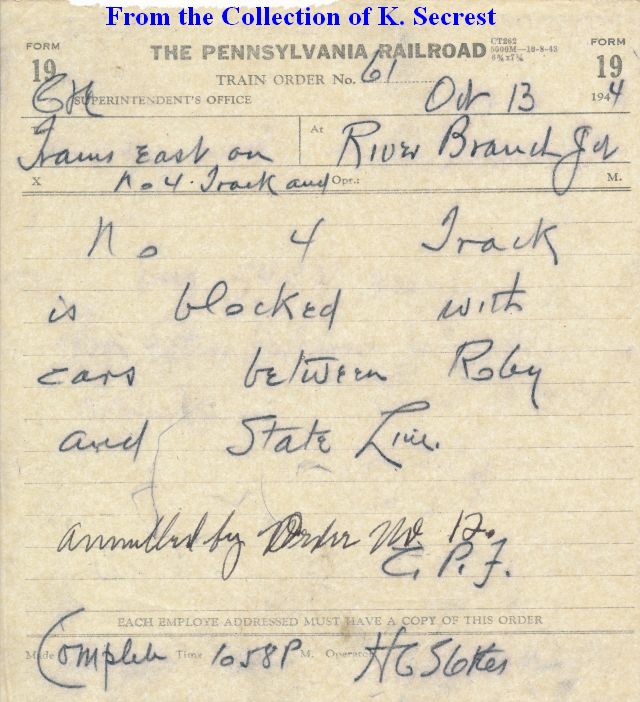 From the Collection of K. Secrest
FORM 19
THE PENNSYLVANIA RAILROAD
CT262
5000M—10-8-43
FORM 19
TRAIN ORDER No. 61
SUPERINTENDENT'S OFFICE Oct 13 1944
Trains East on At River Branch Jct
X No 4 Track and Opr.: M.
No 4 Track
is blocked with
cars between Roby
and State Line.
annulled by Order No. 12.
C. P. J.
EACH EMPLOYE ADDRESSED MUST HAVE A COPY OF THIS ORDER
Made Complete Time 1058P M. Operator H G Stokes